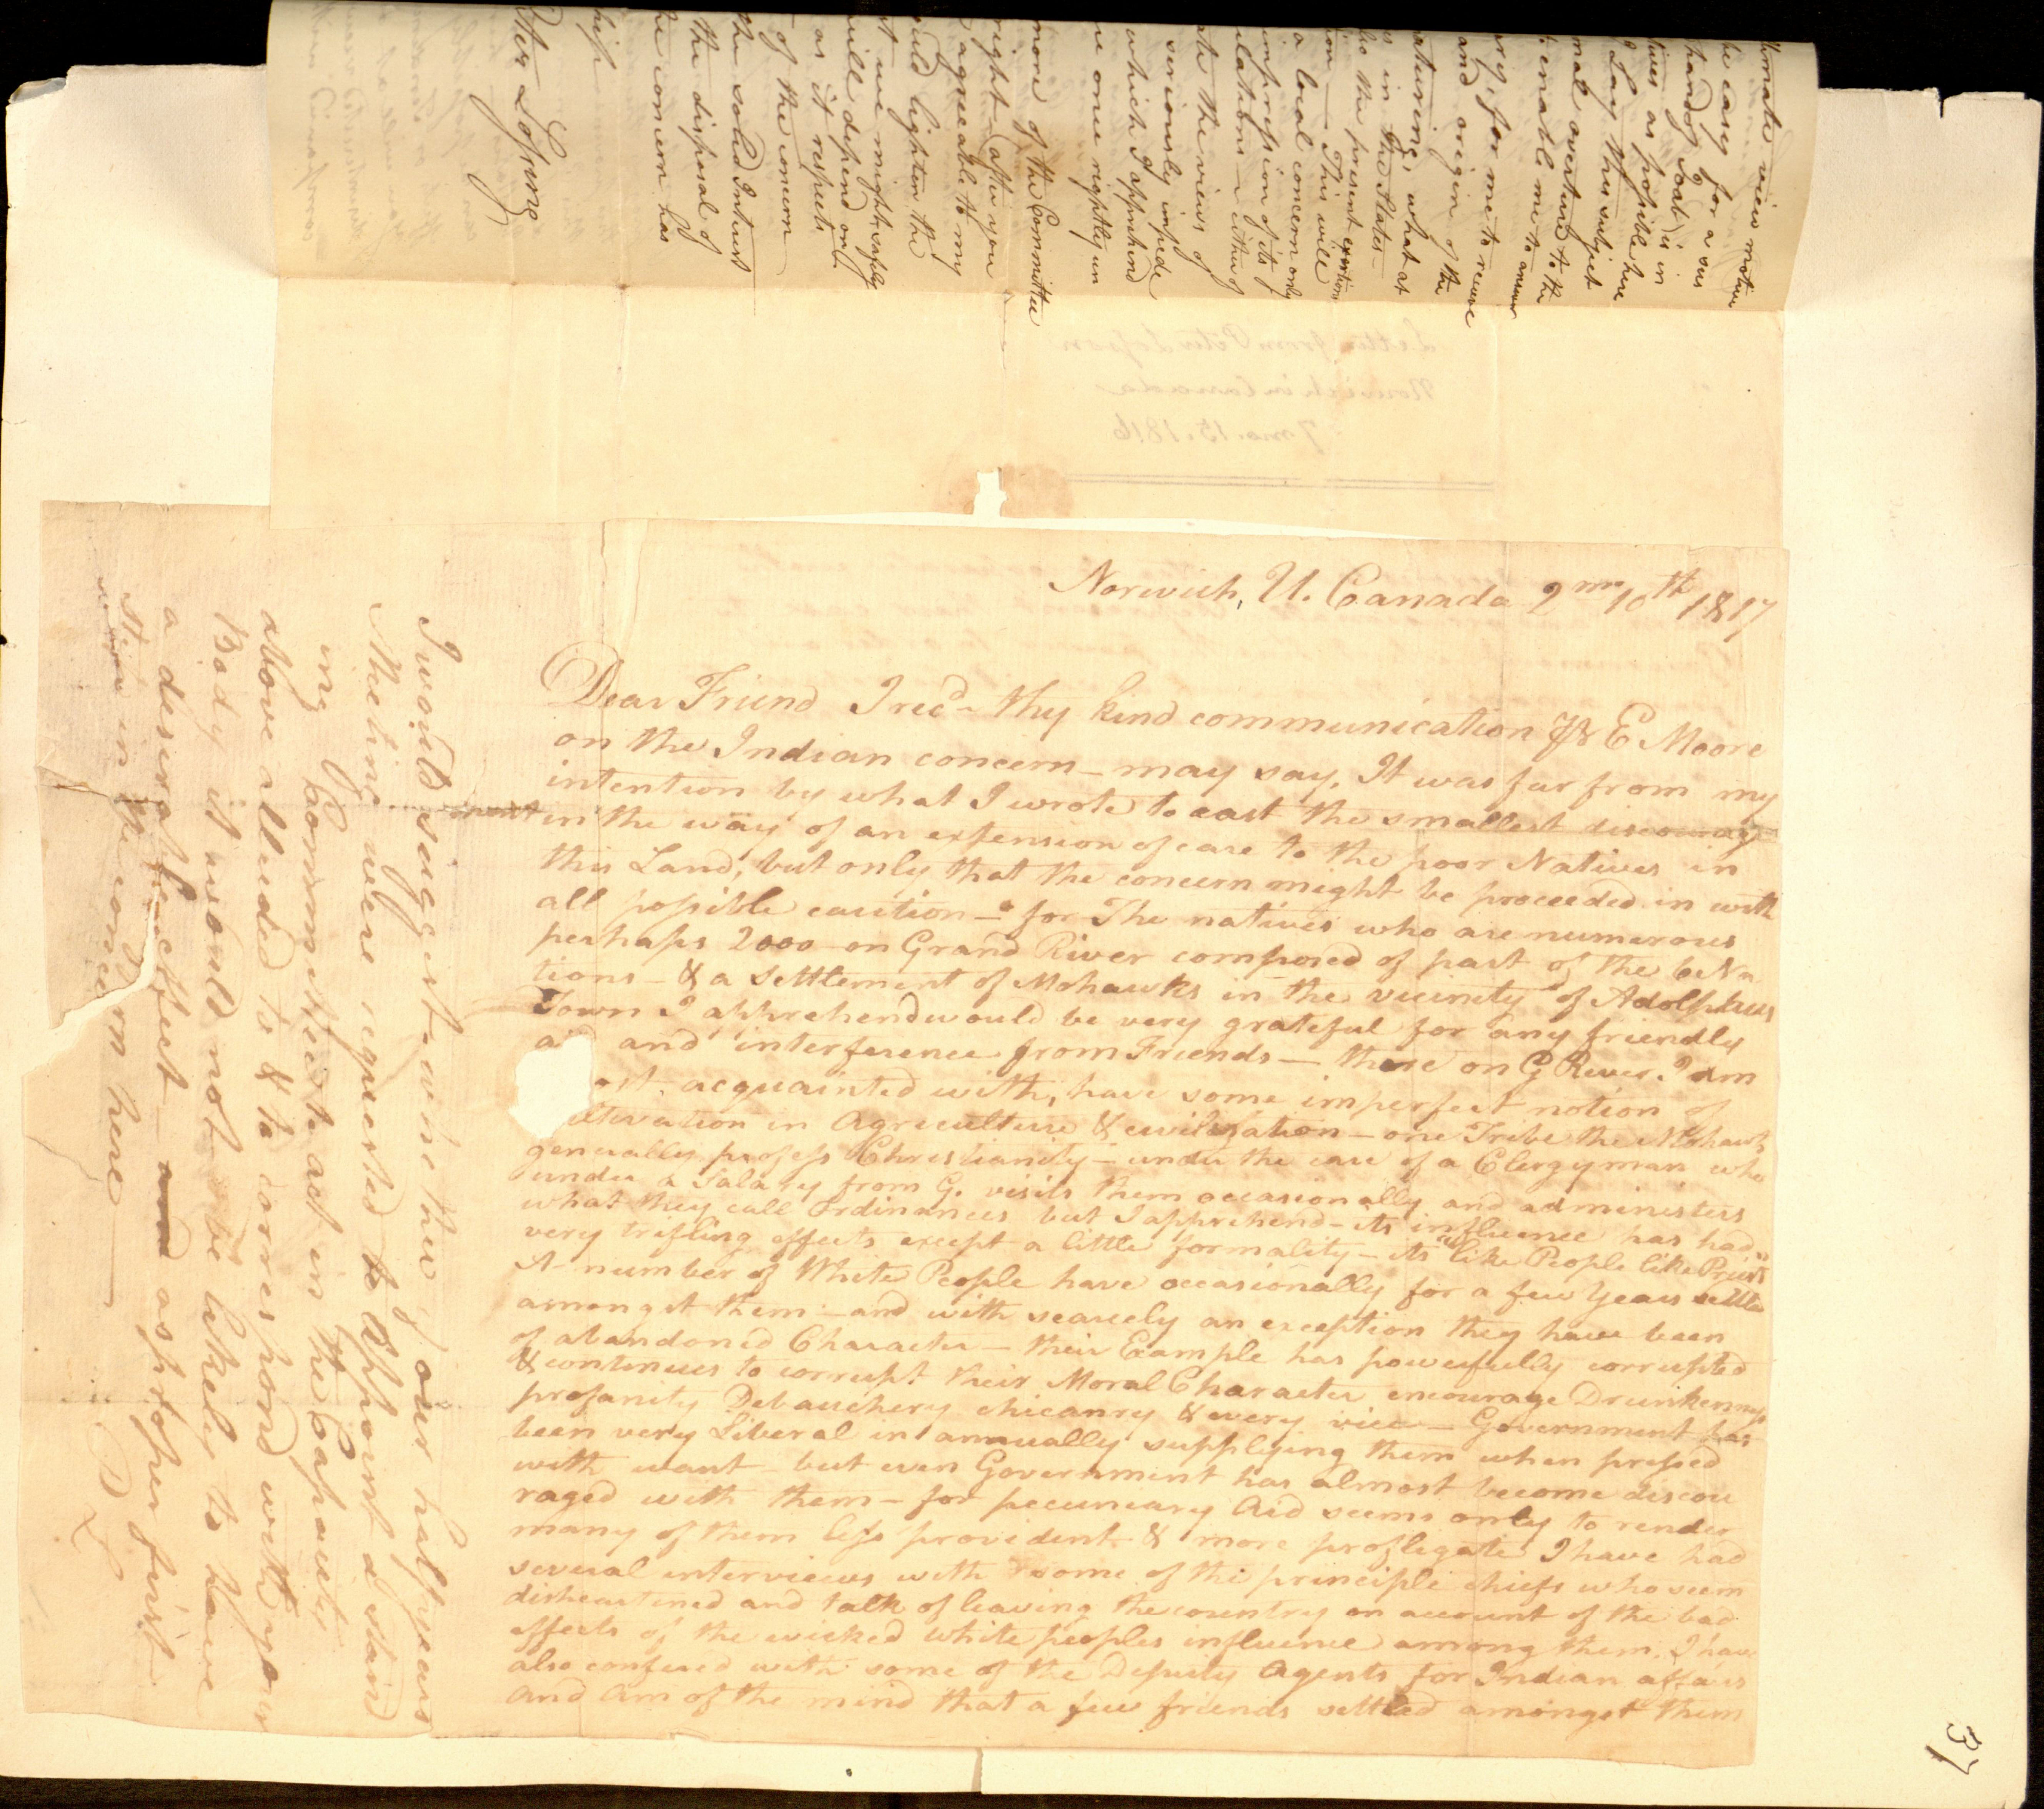 Norwich, U. Canada 2mo 10th 1817
Dear Friend I recd thy kind communication & E Moore
on the Indian concern – may say, It was far from my
intention by what I wrote to cast the smallest discourage
ment in the way of an extension of care to the poor Natives in
this Land, but only that the concern might be proceeded in with
all possible caution – for The natives who are numerous
perhaps 2000 on Grand River composed of part of the 6 Na
tions – & a settlement of Mohawks in the vicinity of Adolphus
Town I apprehend would be very grateful for any friendly
and interference from Friends – those on G River I am
acquainted with, have some imperfect notion of
in Agriculture & civilization – one Tribe the Mohawks
generally profess Christianity – under the care of a Clergyman who
under a Salary from G. visits them occasionally and administers
what they call ordinances but I apprehend – its influence has had
very trifling effects except a little formality – its "like People like Priest"
A number of White People have occasionally for a few Years settled
amongst them – and with scarcely an exception they have been
of abandoned Character – their Example has powerfully corrupted
& continues to corrupt their Moral Character encourage Drunkenness
profanity Debauchery chicanry & every vice – Government has
been very Liberal in annually supplying them when pressed
with want – but even Government has almost become discou
raged with them – for pecuniary Aid seems only to render
many of them less provident & more profligate I have had
several interviews with some of the principle chiefs who seem
disheartened and talk of leaving the country on account of the bad
effects of the wicked white peoples influence among them. I have
also confered with some of the Deputy Agents for Indian affairs
and am of the mind that a few friends settled amongst them
I would suggest whether our half years
Meeting were requested to appoint a stand
ing Committee to act in the Capacity
above alluded to & to correspond with your
Body it would not be likely to have
a desirable effect – as proper first
in the concern here
P L
view motive
be easy for a
hand of is in
tives as possible here
Lay this subject
overture to the
enable me to answer
for me to receive
and origin of the
what at
in the States –
the present exertions
This will
a local concern only
impression of its
either of
ate the views of
seriously impede
which I apprehend
one rightly un
none of the Committee
right – after you
agreeable to my
ould lighten the
t we might safely
will depend only
as it respects
of the concern
the solid Interest
the disposal of
he concern has
hip
Peter Lossing
Letter from Peter Lossing
Norwich in Canada
7 mo. 15. 1816
37